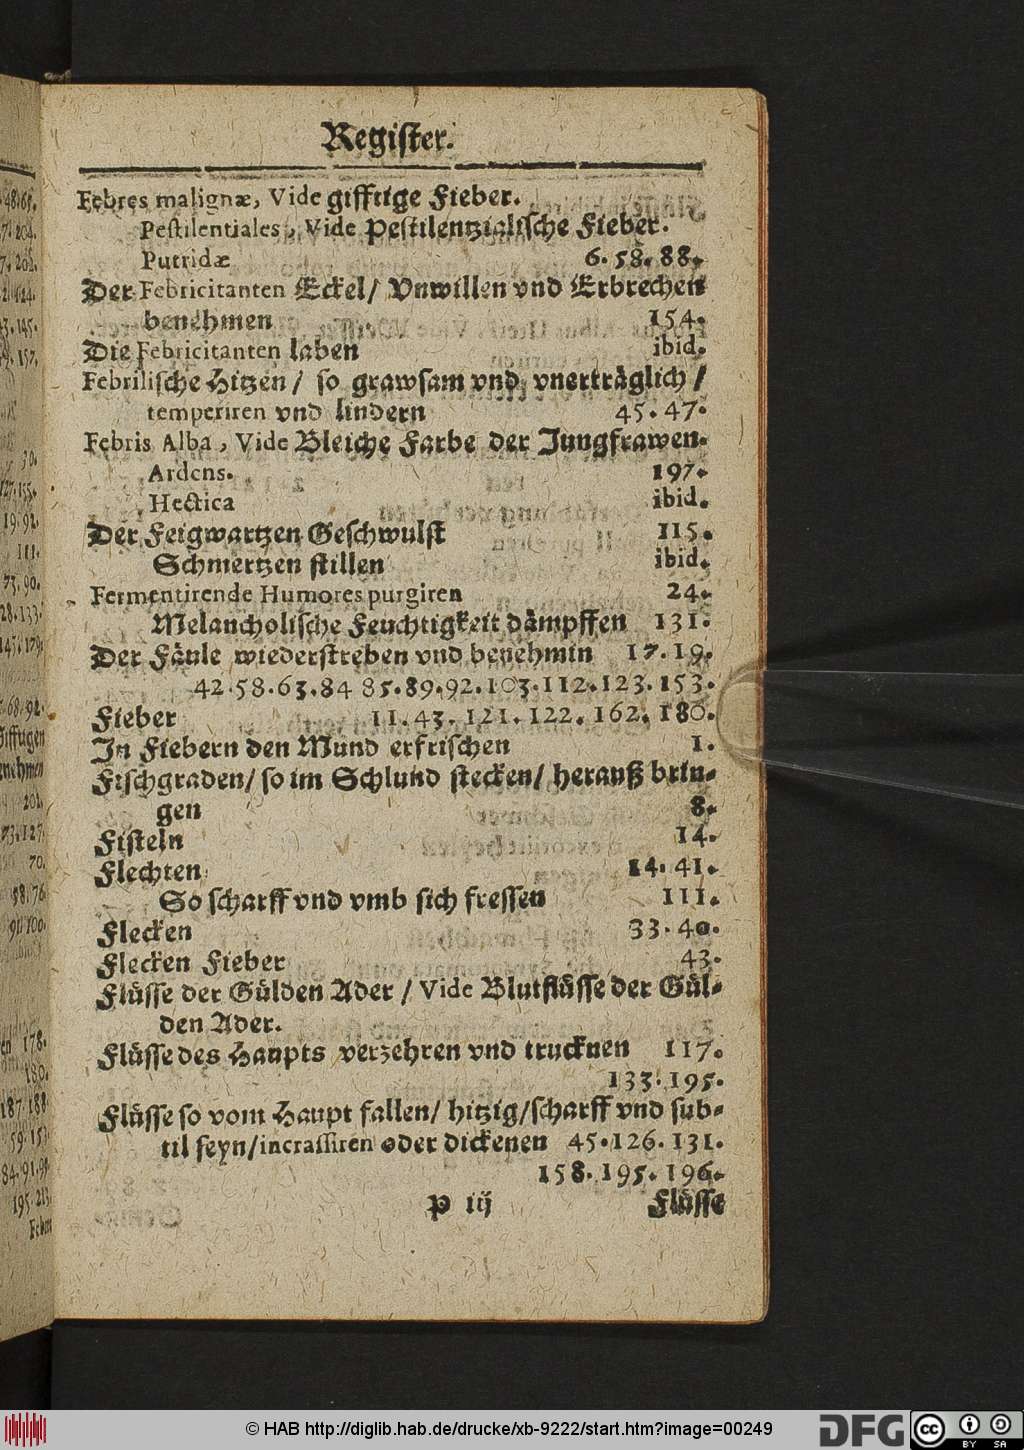 Register.
Febres malignæ, Vide gifftige Fieber.
Pestilentiales, Vide Pestilentzialische Fieber.
Putridæ 6. 58. 88.
Der Febricitanten Eckel/ Vnwillen vnd Erbrechen
benehmen 154.
Die Febricitanten laben ibid.
Febrilische Hitzen/ so grawsam vnd vnerträglich/
temperiren vnd lindern 45. 47.
Febris Alba, Vide Bleiche Farbe der Jungfrawen.
Ardens. 197.
Hectica ibid.
Der Feigwartzen Geschwulst 115.
Schmertzen stillen ibid.
Fermentirende Humores purgiren 24.
Melancholische Feuchtigkeit dämpffen 131.
Der Fäule wiederstreben vnd benehmin 17. 19.
42. 58. 63. 84 85. 89. 92. 103. 112. 123. 153.
Fieber 11. 43. 121. 122. 162. 180.
In Fiebern den Mund erfrischen 1.
Fischgraden/ so im Schlund stecken/ herauß brin-
gen 8.
Fisteln 14.
Flechten 14. 41.
So scharff vnd vmb sich fressen 111.
Flecken 33. 40.
Flecken Fieber 43.
Flüsse der Gülden Ader / Vide Blutflüsse der Gül-
den Ader.
Flüsse des Haupts verzehren vnd trucknen 117.
133. 195.
Flüsse so vom Haupt fallen/ hitzig/ scharff vnd sub-
til seyn/ incrassiren oder dickenen 45. 126. 131.
158. 195. 196.
P iij Flüsse
© HAB http://diglib.hab.de/drucke/xb-9222/start.htm?image=00249
DFG
cc BY SA